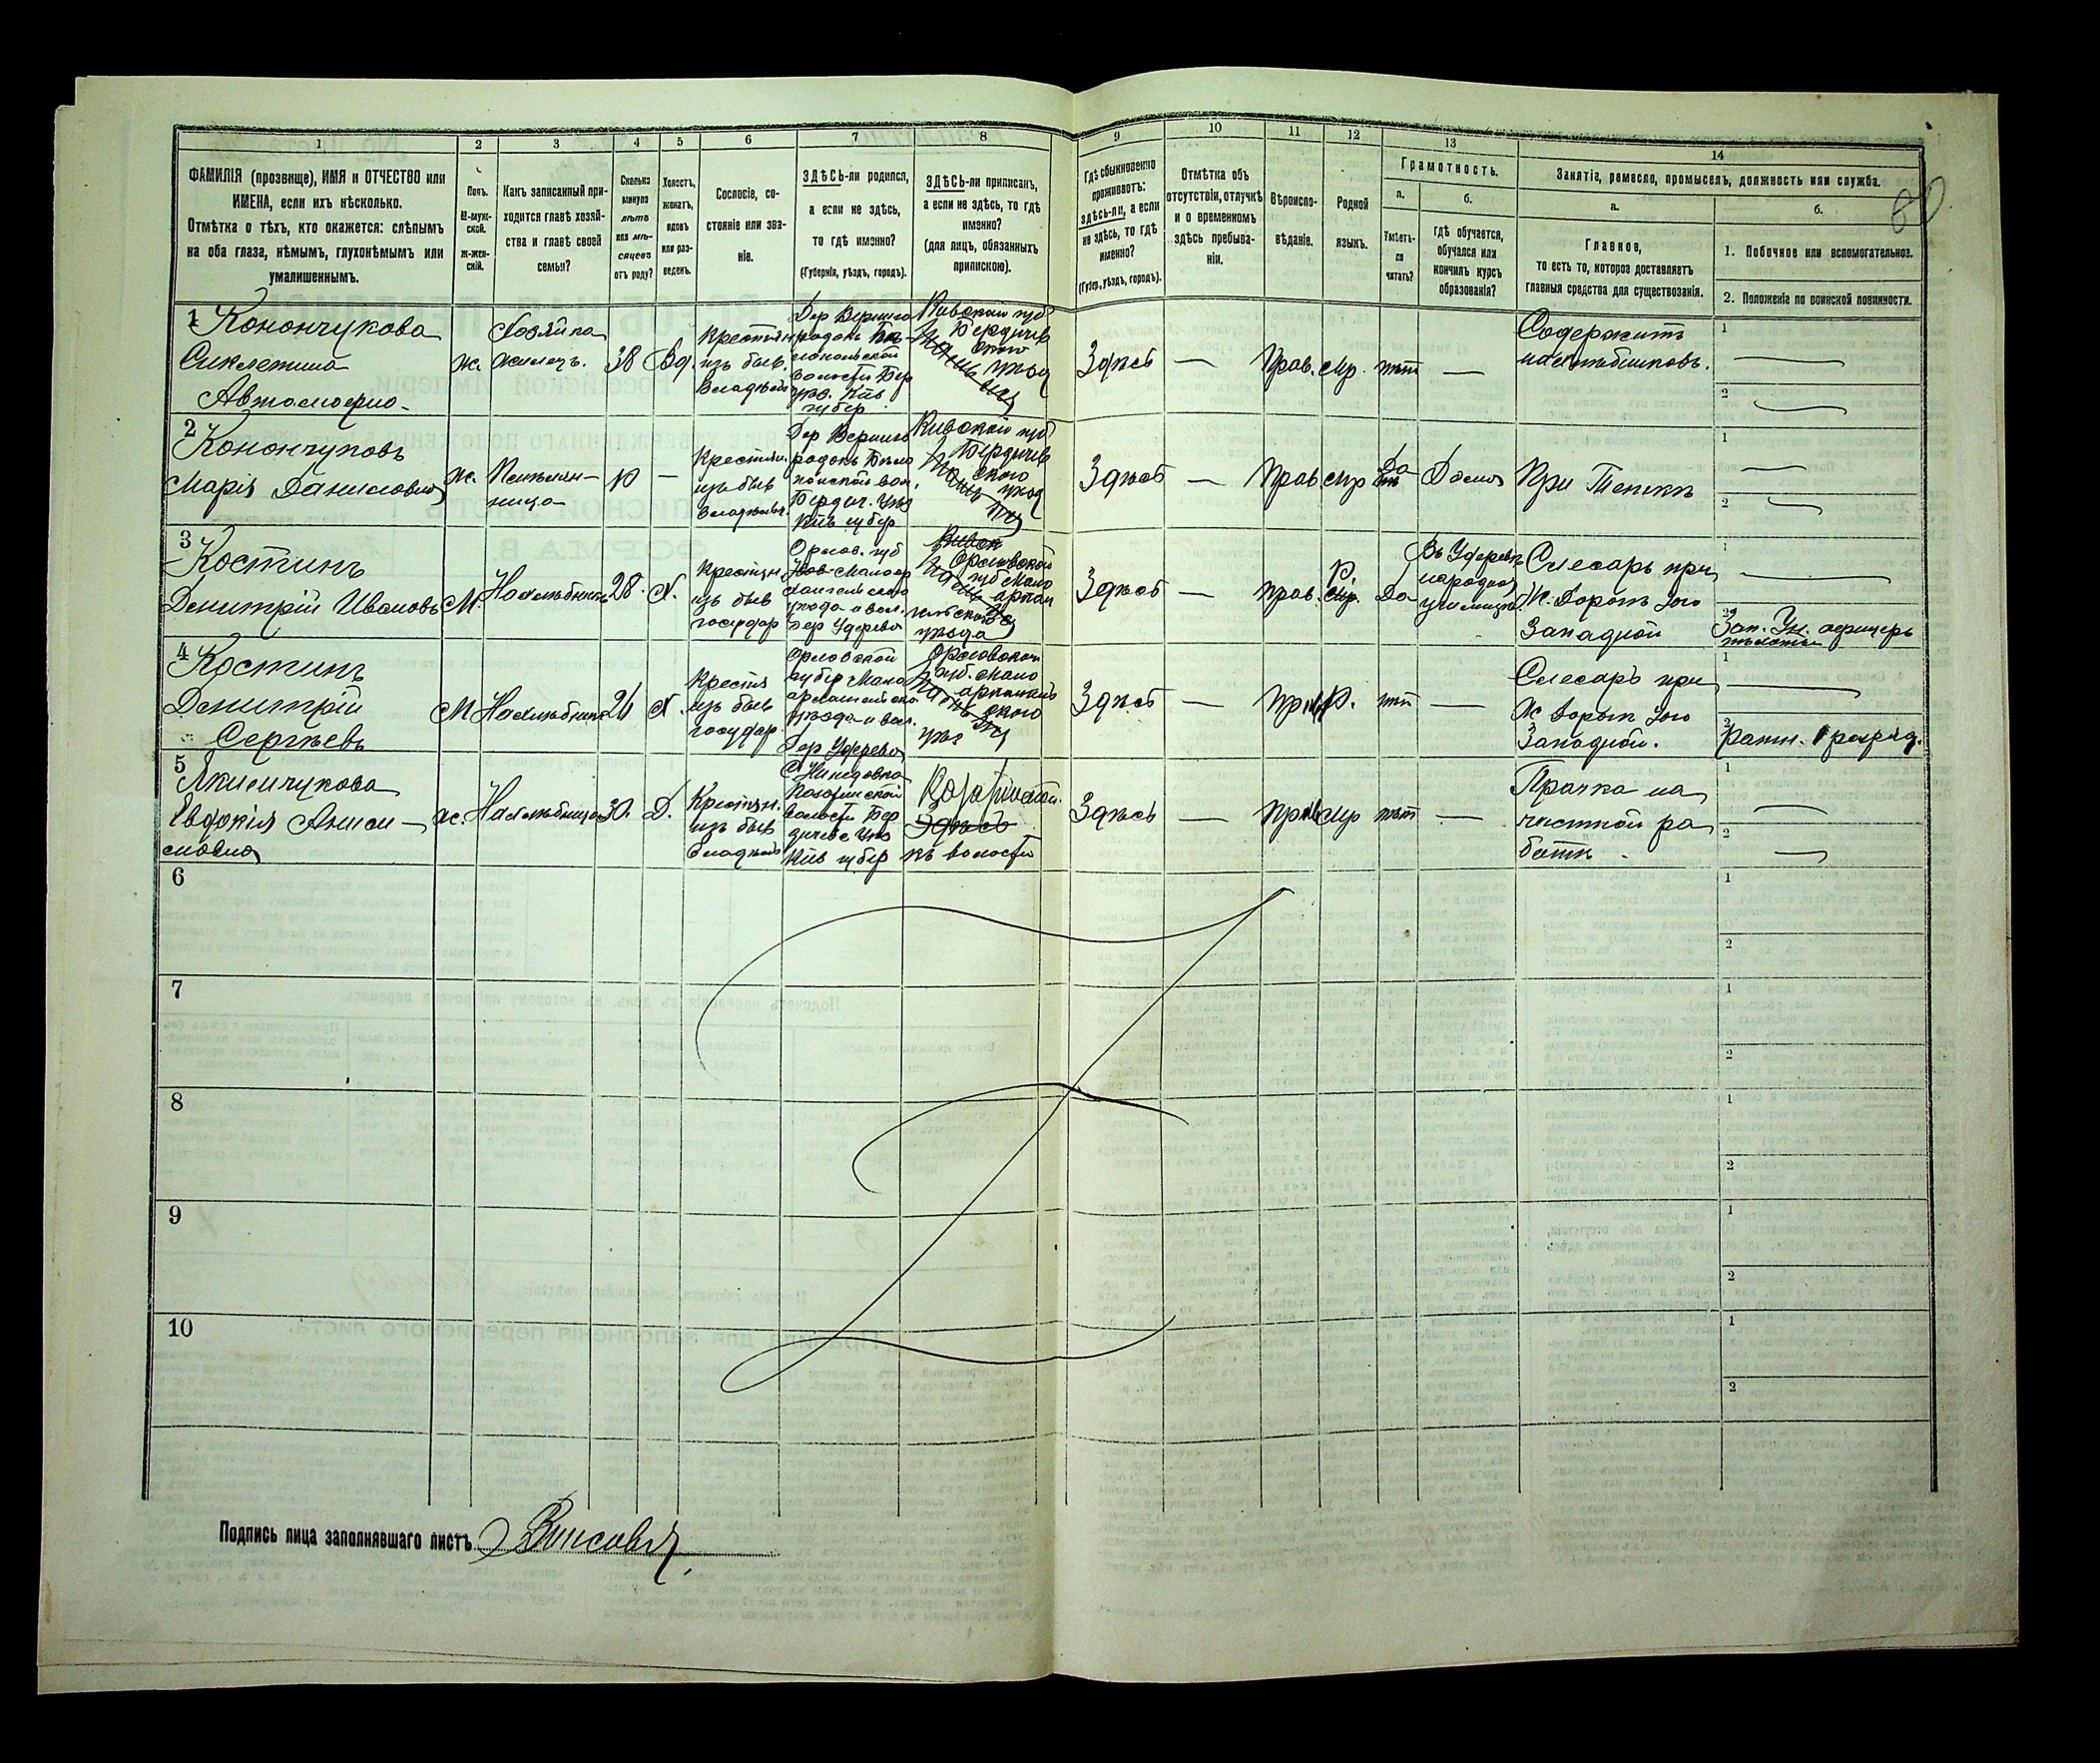 1 2 3 4 5 6 7 8 9 10 11 12 13 14
ФАМИЛІЯ (прозвище), ИМЯ и ОТЧЕСТВО или
ИМЕНА, если ихъ нѣсколько.
Отмѣтка о тѣхъ, кто окажется: слѣпымъ
на оба глаза, нѣмымъ, глухонѣмымъ или
умалишеннымъ.
Полъ.
М-муж-
ской.
ж-жен-
скій.
Какъ записанный при-
ходится главѣ хозяй-
ства и главѣ своей
семьи?
Сколько
минуло
лѣтъ
или мѣ-
сяцевъ
отъ роду?
Холостъ,
женатъ,
вдовъ
или раз-
веденъ.
Сословіе, со-
стояніе или зва-
ніе.
ЗДѢСЬ-ли родился,
а если не здѣсь,
то гдѣ именно?
(Губернія, уѣздъ, городъ).
ЗДѢСЬ-ли приписанъ,
а если не здѣсь, то гдѣ
именно?
(для лицъ, обязанныхъ
припискою).
Гдѣ обыкновенно
проживаетъ:
здѣсь-ли, а если
не здѣсь, то гдѣ
именно?
(Губер., уѣздъ, городъ).
Отмѣтка объ
отсутствіи, отлучкѣ
и о временномъ
здѣсь пребыва-
ніи.
Вѣроиспо-
вѣданіе.
Родной
языкъ.
Грамотность.
а.
Умѣетъ-
ли
читать?
б.
гдѣ обучается,
обучался или
кончилъ курсъ
образованія?
Занятіе, ремесло, промыселъ, должность или служба.
а.
Главное,
то есть то, которое доставляетъ
главныя средства для существованія.
б.
1. Побочное или вспомогательное.
2. Положеніе по воинской повинности.
1 Конончукова
Ж.
Хозяйка
38
Вд.
Крестьян
изъ быв.
Кивской губ
Бердичев
Здѣсь
—
Прав.
Мр.
нѣт
—
Содержит
нахлѣбниковъ.
1
2
2 Конончуковъ
Марія Даниловна
Ж.
Племян-
ница
—
Крестьян.
изъ быв
Бердич. Уѣз
Кіев губер
Кивской губ
Бердичев
ского
Здѣсь
—
Прав
Мр
Да
Дома
При Теткѣ
1
2
3
Костинъ
Дмитрій Ивановъ
М.
Нахлѣбникъ
28.
Х.
Крестьян
изъ быв
государ
Орлов. губ
дер Удерево
Орловской
губ Мало
архан
гельского
уѣзда
Здѣсь
—
Прав.
Р.
Да
Въ Удеревк
народно
училищѣ
Слесарь при
Ж. Дорогѣ Юго
Западной
1
2 Зап. Ун. офицеръ
4
Костинъ
Дмитрій
Сергѣевъ
М
Нахлѣбникъ
Х.
Крестья
изъ быв
государ
Орловской
губер Мало
архангельско
уѣзда
дер Удерево
Орловской
губ. Мало
Здѣсь
—
Р.
нѣт
—
Слесарь при
Ж Дорогѣ Юго
Западной.
1
2 Ратн. 1 разряд.
5
Якимчукова
Евдокія Аниси-
мовна
Ж.
Нахлѣбница
30.
Д.
Крестьян.
изъ быв
Казатинской
волости Бер
дичев Уѣз
Кіев губер
Казатинской
Здѣсь
къ волости
Здѣсь
—
Прав
Мр
нѣт
—
Прачка на
частной ра
ботѣ.
1
2
6
1
2
7
1
2
8
1
2
9
1
2
10
1
2
Подпись лица заполнявшаго листъ